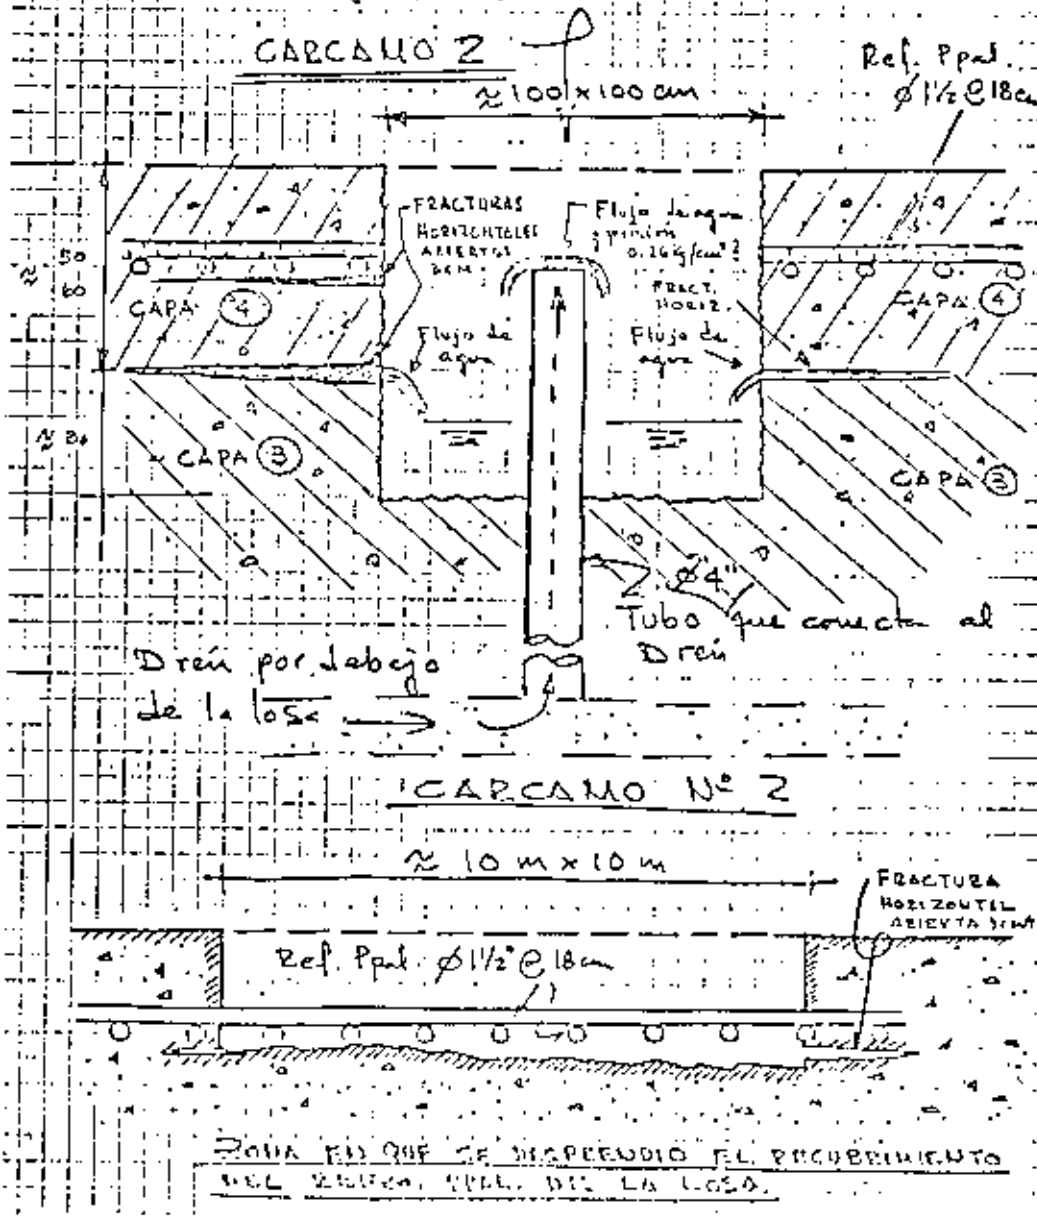 CARCAMO 2
≈ 100 x 100 cm
Ref. Ppal.
Ø 1½ @ 18 cm
FRACTURAS
HORIZONTALES
ABIERTAS
Flujo de agua
a presión
FRACT.
HORIZ.
≈ 50
60
CAPA 4
CAPA 4
Flujo de
agua
Flujo de
agua
CAPA 3
CAPA 3
Ø 4"
Tubo que conecta al
Dren
Dren por debajo
de la losa
CARCAMO Nº 2
≈ 10 m x 10 m
FRACTURA
HORIZONTAL
ABIERTA
Ref. Ppal. Ø 1½" @ 18 cm
ZONA EN QUE SE DESPRENDIO EL RECUBRIMIENTO
DEL LA LOSA.